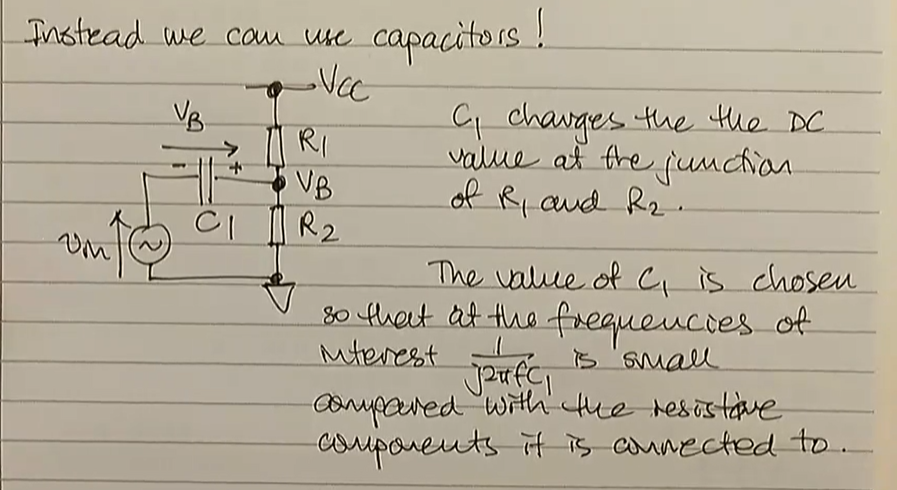 Instead we can use capacitors!
VCC
VB
R1
- +
VB
C1
R2
vin
~
C1 changes the the DC
value at the junction
of R1 and R2.
The value of C1 is chosen
so that at the frequencies of
interest 1/j2πfC1 is small
compared with the resistive
components it is connected to.